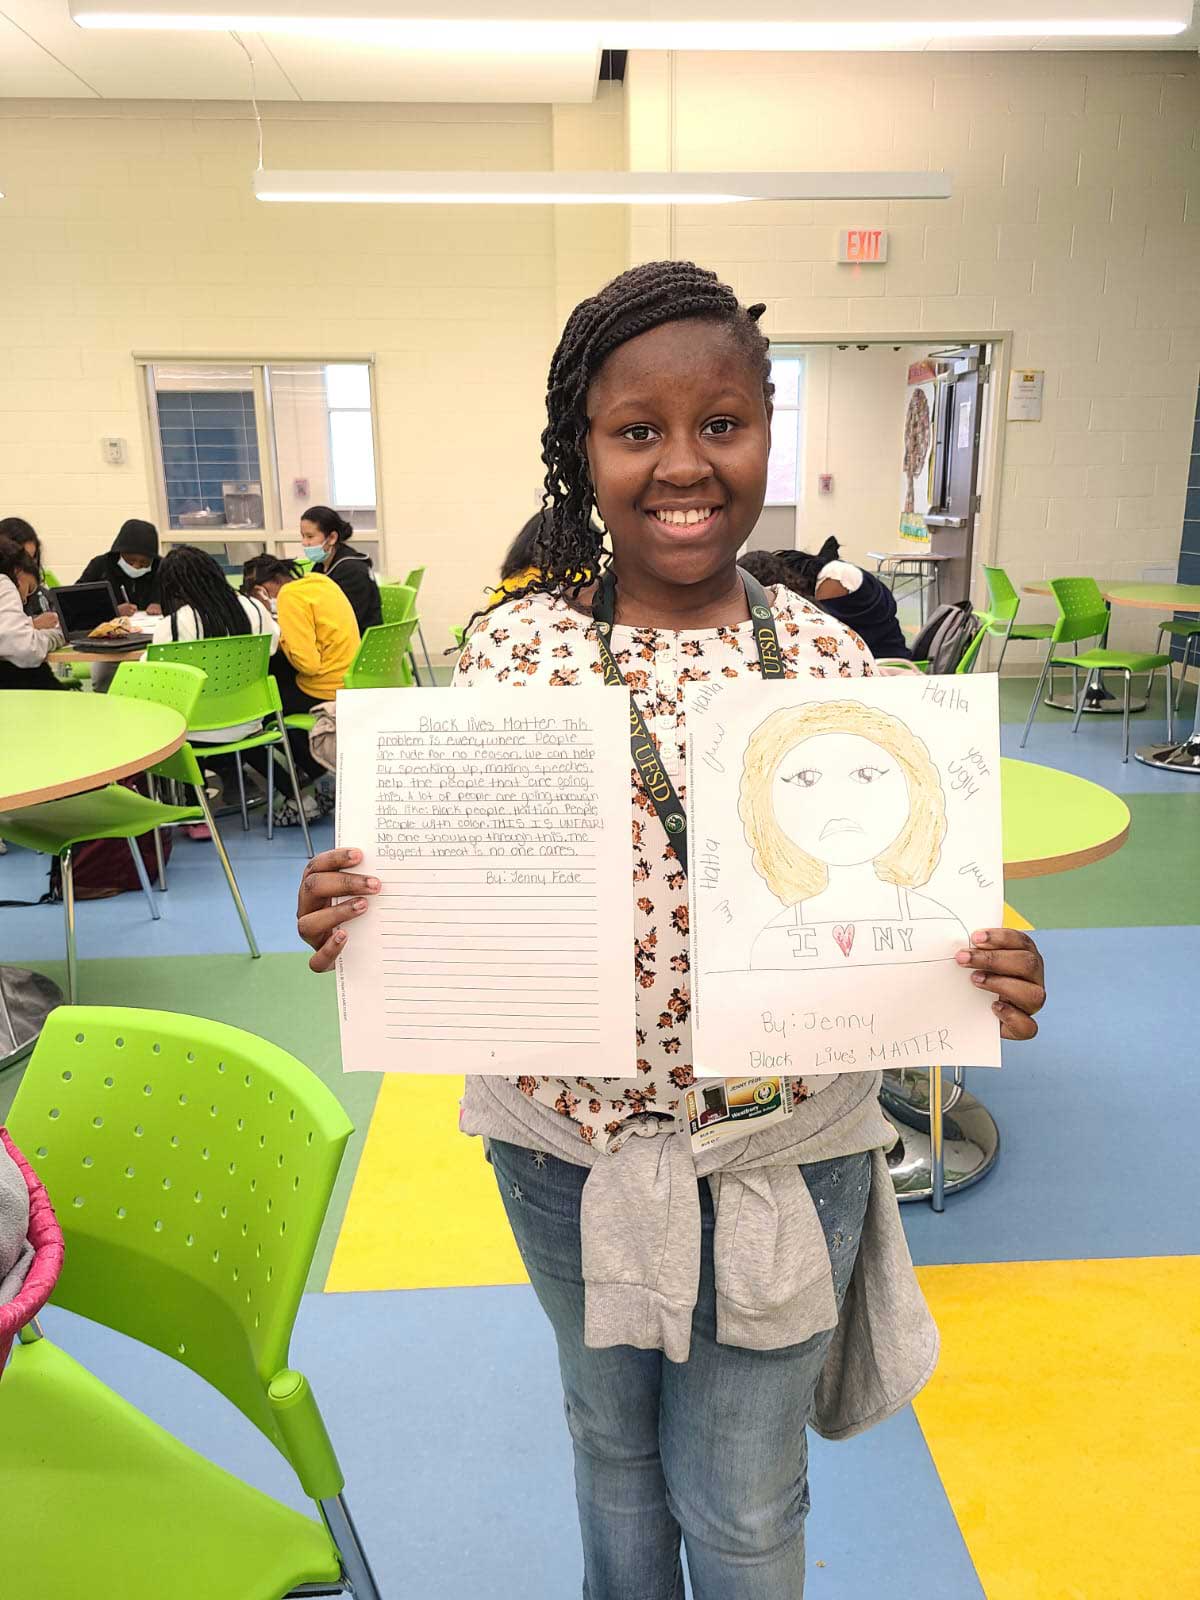 EXIT
Black lives Matter This
problem is everywhere People
are rude for no reason. We can help
by speaking up, making speeches,
help the people that are going
this. A lot of people are going through
this like: Black people, Haitian People,
People with color. THIS IS UNFAIR!
No one should go through this. The
biggest threat is no one cares.
By: Jenny Fede
2
HaHa
HaHa
your
ugly
HaHa
I ♥ NY
By: Jenny
Black Lives MATTER
UFSD
RY UFSD
JENNY FEDE
STUDENT
Westbury
Middle School